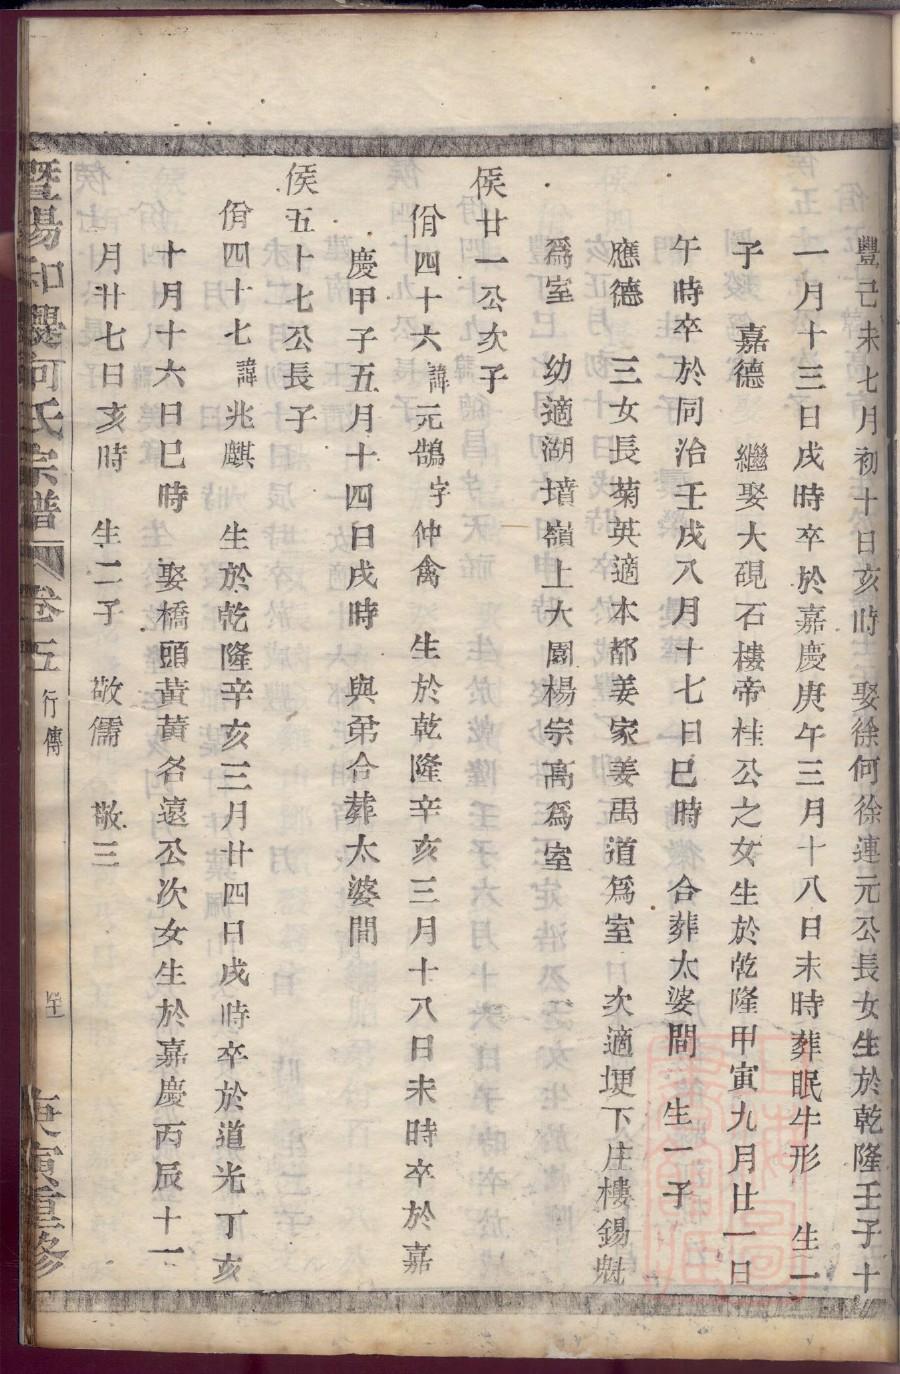 豐己未七月初十日亥時　娶徐何徐連元公長女生於乾隆壬子十
一月十三日戌時卒於嘉慶庚午三月十八日未時葬眠牛形　生一
子　嘉德　繼娶大硯石樓帝桂公之女生於乾隆甲寅九月廿一日
午時卒於同治壬戌八月十七日巳時　合葬太婆間　生一子
應德　三女長菊英適本都姜家姜禹道爲室　次適埂下庄樓錫魁
爲室　幼適湖墳嶺上大園楊宗高爲室
侯廿一公次子
佾四十六諱元鵠字仲禽　生於乾隆辛亥三月十八日未時卒於嘉
慶甲子五月十四日戌時　與弟合葬太婆間
侯五十七公長子
佾四十七諱兆麒　生於乾隆辛亥三月廿四日戌時卒於道光丁亥
十月十六日巳時　娶橋頭黃黃名遠公次女生於嘉慶丙辰十一
月廿七日亥時　生二子　敬儒　敬三
暨陽和㘰何氏宗譜　卷五　行傳　庚寅重修